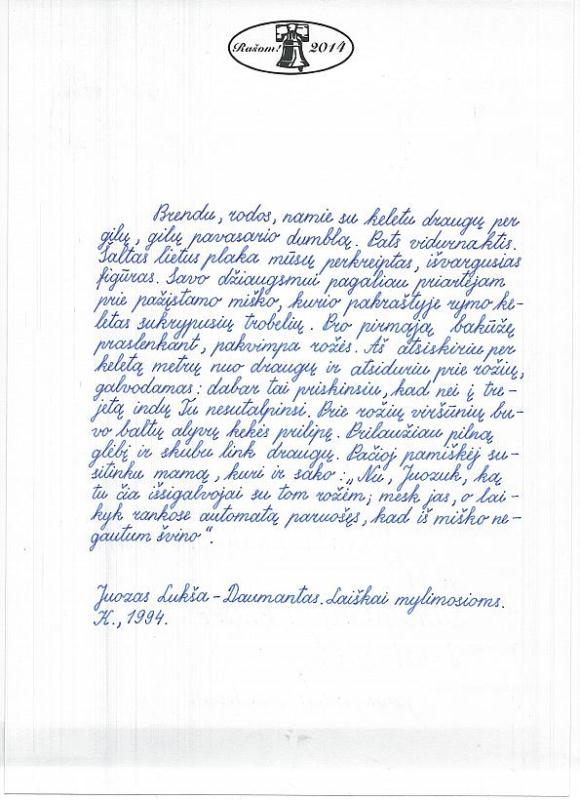 Rašom! 2014
Brendu, rodos, namie su keletu draugų per
gilų, gilų pavasario dumblą. Pats vidurnaktis.
Šaltas lietus plaka mūsų perkreiptas, išvargusias
figūras. Savo džiaugsmui pagaliau priartėjam
prie pažįstamo miško, kurio pakraštyje rymo ke-
letas sukrypusių trobelių. Pro pirmąją bakūžę
praslenkant, pakvimpa rožės. Aš atsiskiriu per
keletą metrų nuo draugų ir atsiduriu prie rožių,
galvodamas: dabar tai priskinsiu, kad nei į tre-
jetą indų Tu nesutalpinsi. Prie rožių viršūnių bu-
vo baltų alyvų kekės prilipę. Prilaužiau pilną
glėbį ir skubu link draugų. Pačioj pamiškėj su-
sitinku mamą, kuri ir sako: „Nu, Juozuk, ką
tu čia išsigalvojai su tom rožėm; mesk jas, o lai-
kyk rankose automatą paruošęs, kad iš miško ne-
gautum švino“.
Juozas Lukša-Daumantas. Laiškai mylimosioms.
K., 1994.